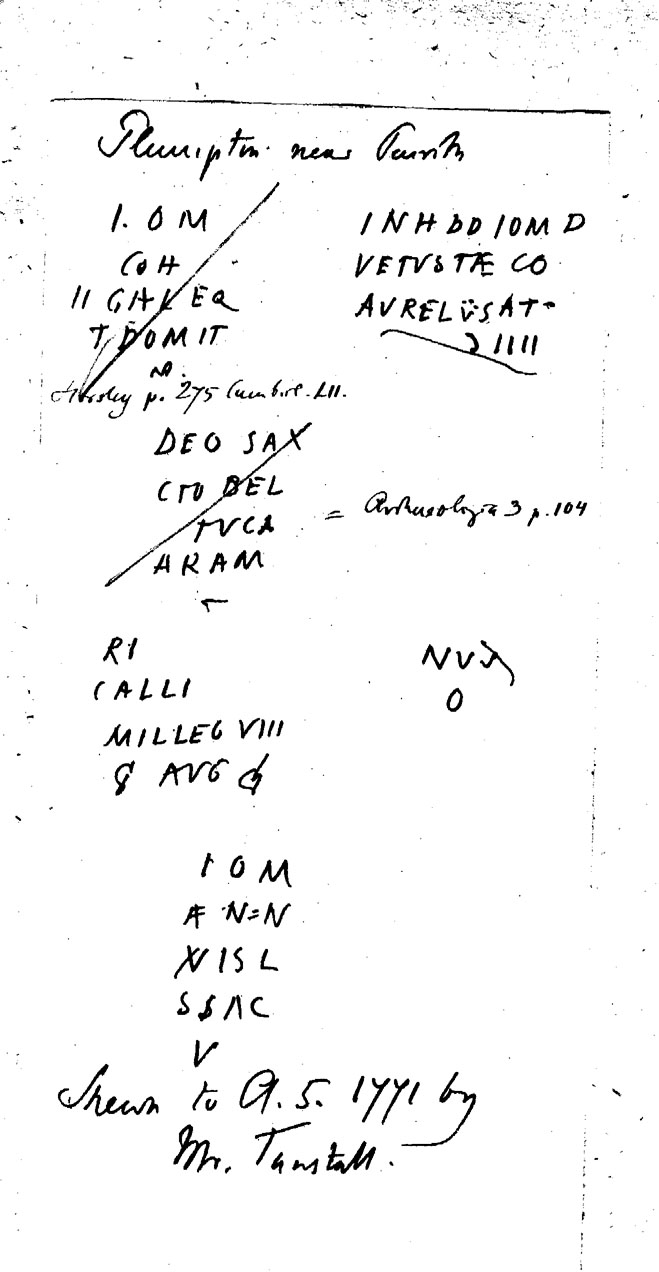 Plumpton near Penrith
I. O M
COH
II GAL EQ
T DOMIT
Horsley p. 275 Cumb. LII.
INH DD IOM D
VETVSTÆ CO
AVREL
IIII
DEO SAX
CTO BEL
TVCA
ARAM
= Archaeologia 3 p. 104
RI
CALLI
MILLEG VIII
AVG
NV
O
I O M
N=N
XI IS L
V
Shewn to A. S. 1771 by
Mr. Tunstall.